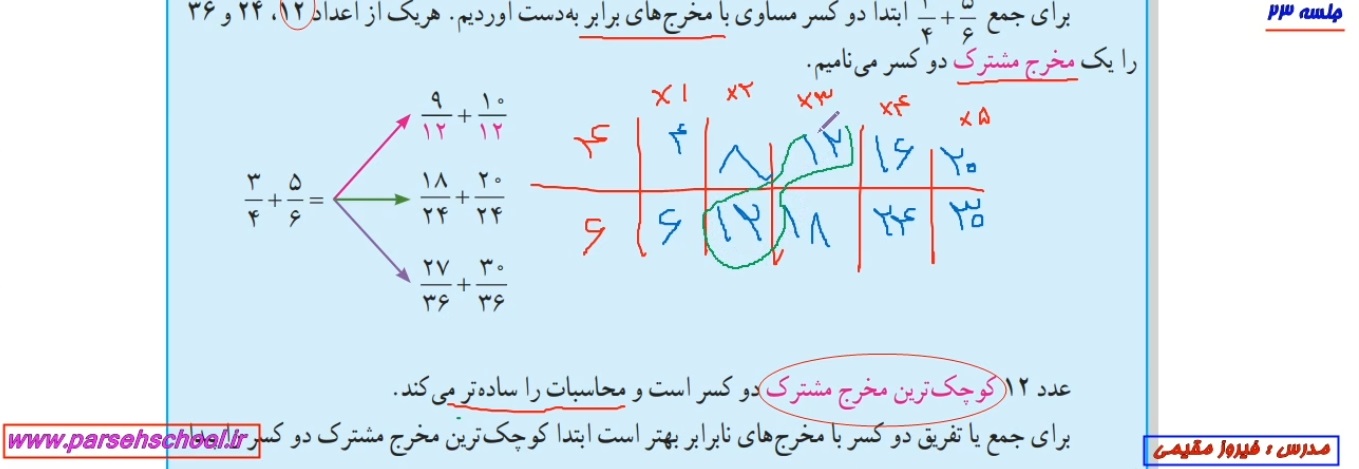 جلسه ۲۳
برای جمع ۵/۶ + ۱/۴ ابتدا دو کسر مساوی با مخرج‌های برابر به‌دست آوردیم. هریک از اعداد ۱۲، ۲۴ و ۳۶
را یک مخرج مشترک دو کسر می‌نامیم.
×۱ ×۲ ×۳ ×۴ ×۵
۴ ۴ ۸ ۱۲ ۱۶ ۲۰
۶ ۶ ۱۲ ۱۸ ۲۴ ۳۰
۹/۱۲ + ۱۰/۱۲
۳/۴ + ۵/۶ = ۱۸/۲۴ + ۲۰/۲۴
۲۷/۳۶ + ۳۰/۳۶
عدد ۱۲ کوچک‌ترین مخرج مشترک دو کسر است و محاسبات را ساده‌تر می‌کند.
برای جمع یا تفریق دو کسر با مخرج‌های نابرابر بهتر است ابتدا کوچک‌ترین مخرج مشترک دو کسر را
www.parsehschool.ir
مدرس : فیروز مقیمی